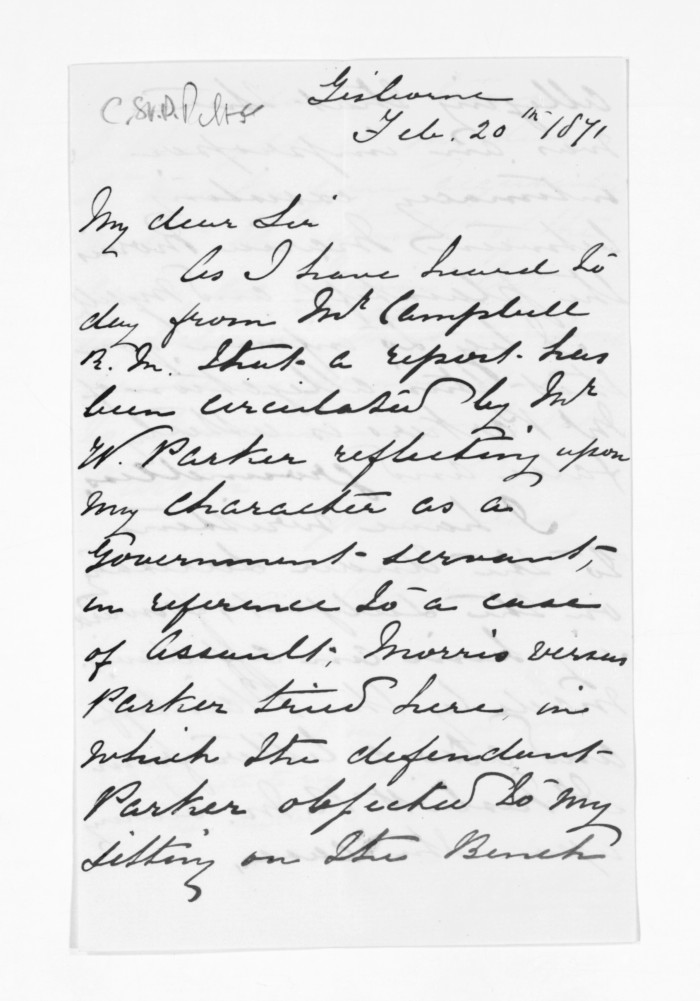 Gisborne
Feb. 20th 1871
My dear Sir
As I have heard to
day from Mr Campbell
R. M. that a report has
been circulated by Mr
W. Parker reflecting upon
my character as a
Government servant,
in reference to a case
of Assault, Morris versus
Parker tried here in
which the defendant
Parker objected to my
sitting on the Bench